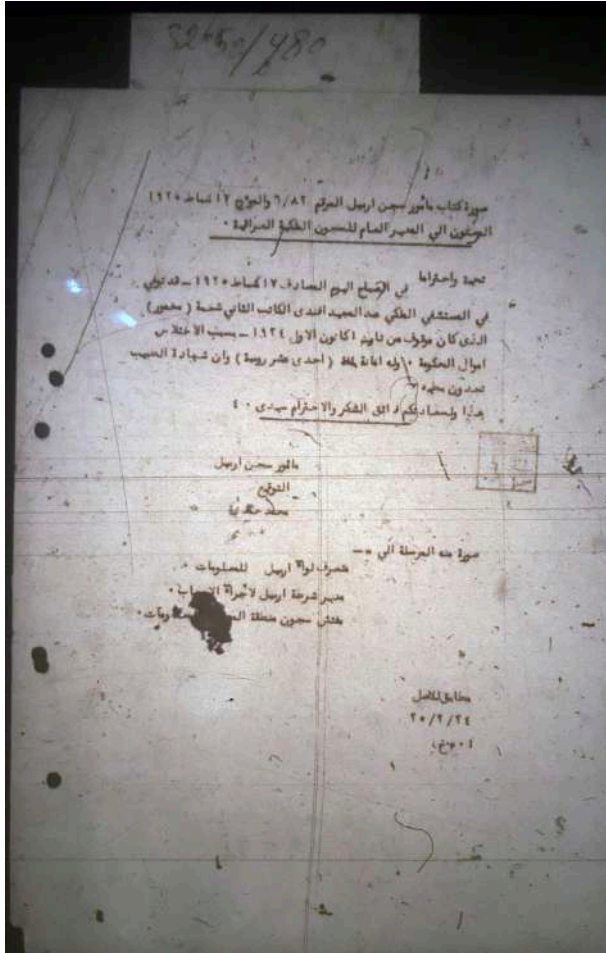 8250/480
صورة كتاب مأمور سجن اربيل المرقم ٦/٨٢ والمؤرخ ١٢ شباط ١٩٢٥
الى المدير العام للسجون الملكية العراقية ٠
تحية واحتراما
في الصباح اليوم المصادف ١٧ شباط ١٩٢٥ ــ قد توفي
في المستشفي الملكي عبدالحميد افندى الكاتب الثاني شعبة ( مخمور )
الذى كان موقوف من تاريخ ١ كانون الاول ١٩٢٤ ــ بسبب الاختلاس
اموال الحكومة ٠ وله امانة بلغ ( احدى عشر روبية ) وان شهادة الطبيب
تجدون معه ٠
هذا ولسعادتكم فائق الشكر والاحترام سيدى ٠ ٤
مأمور سجن اربيل
التوقيع
محمد
صورة منه المرسلة الي ــ
متصرف لواء اربيل للمعلومات ٠
مدير شرطة اربيل لاجراء الايجاب ٠
مفتش سجون منطقة
مطابق للاصل
٢٥/٢/٢٤